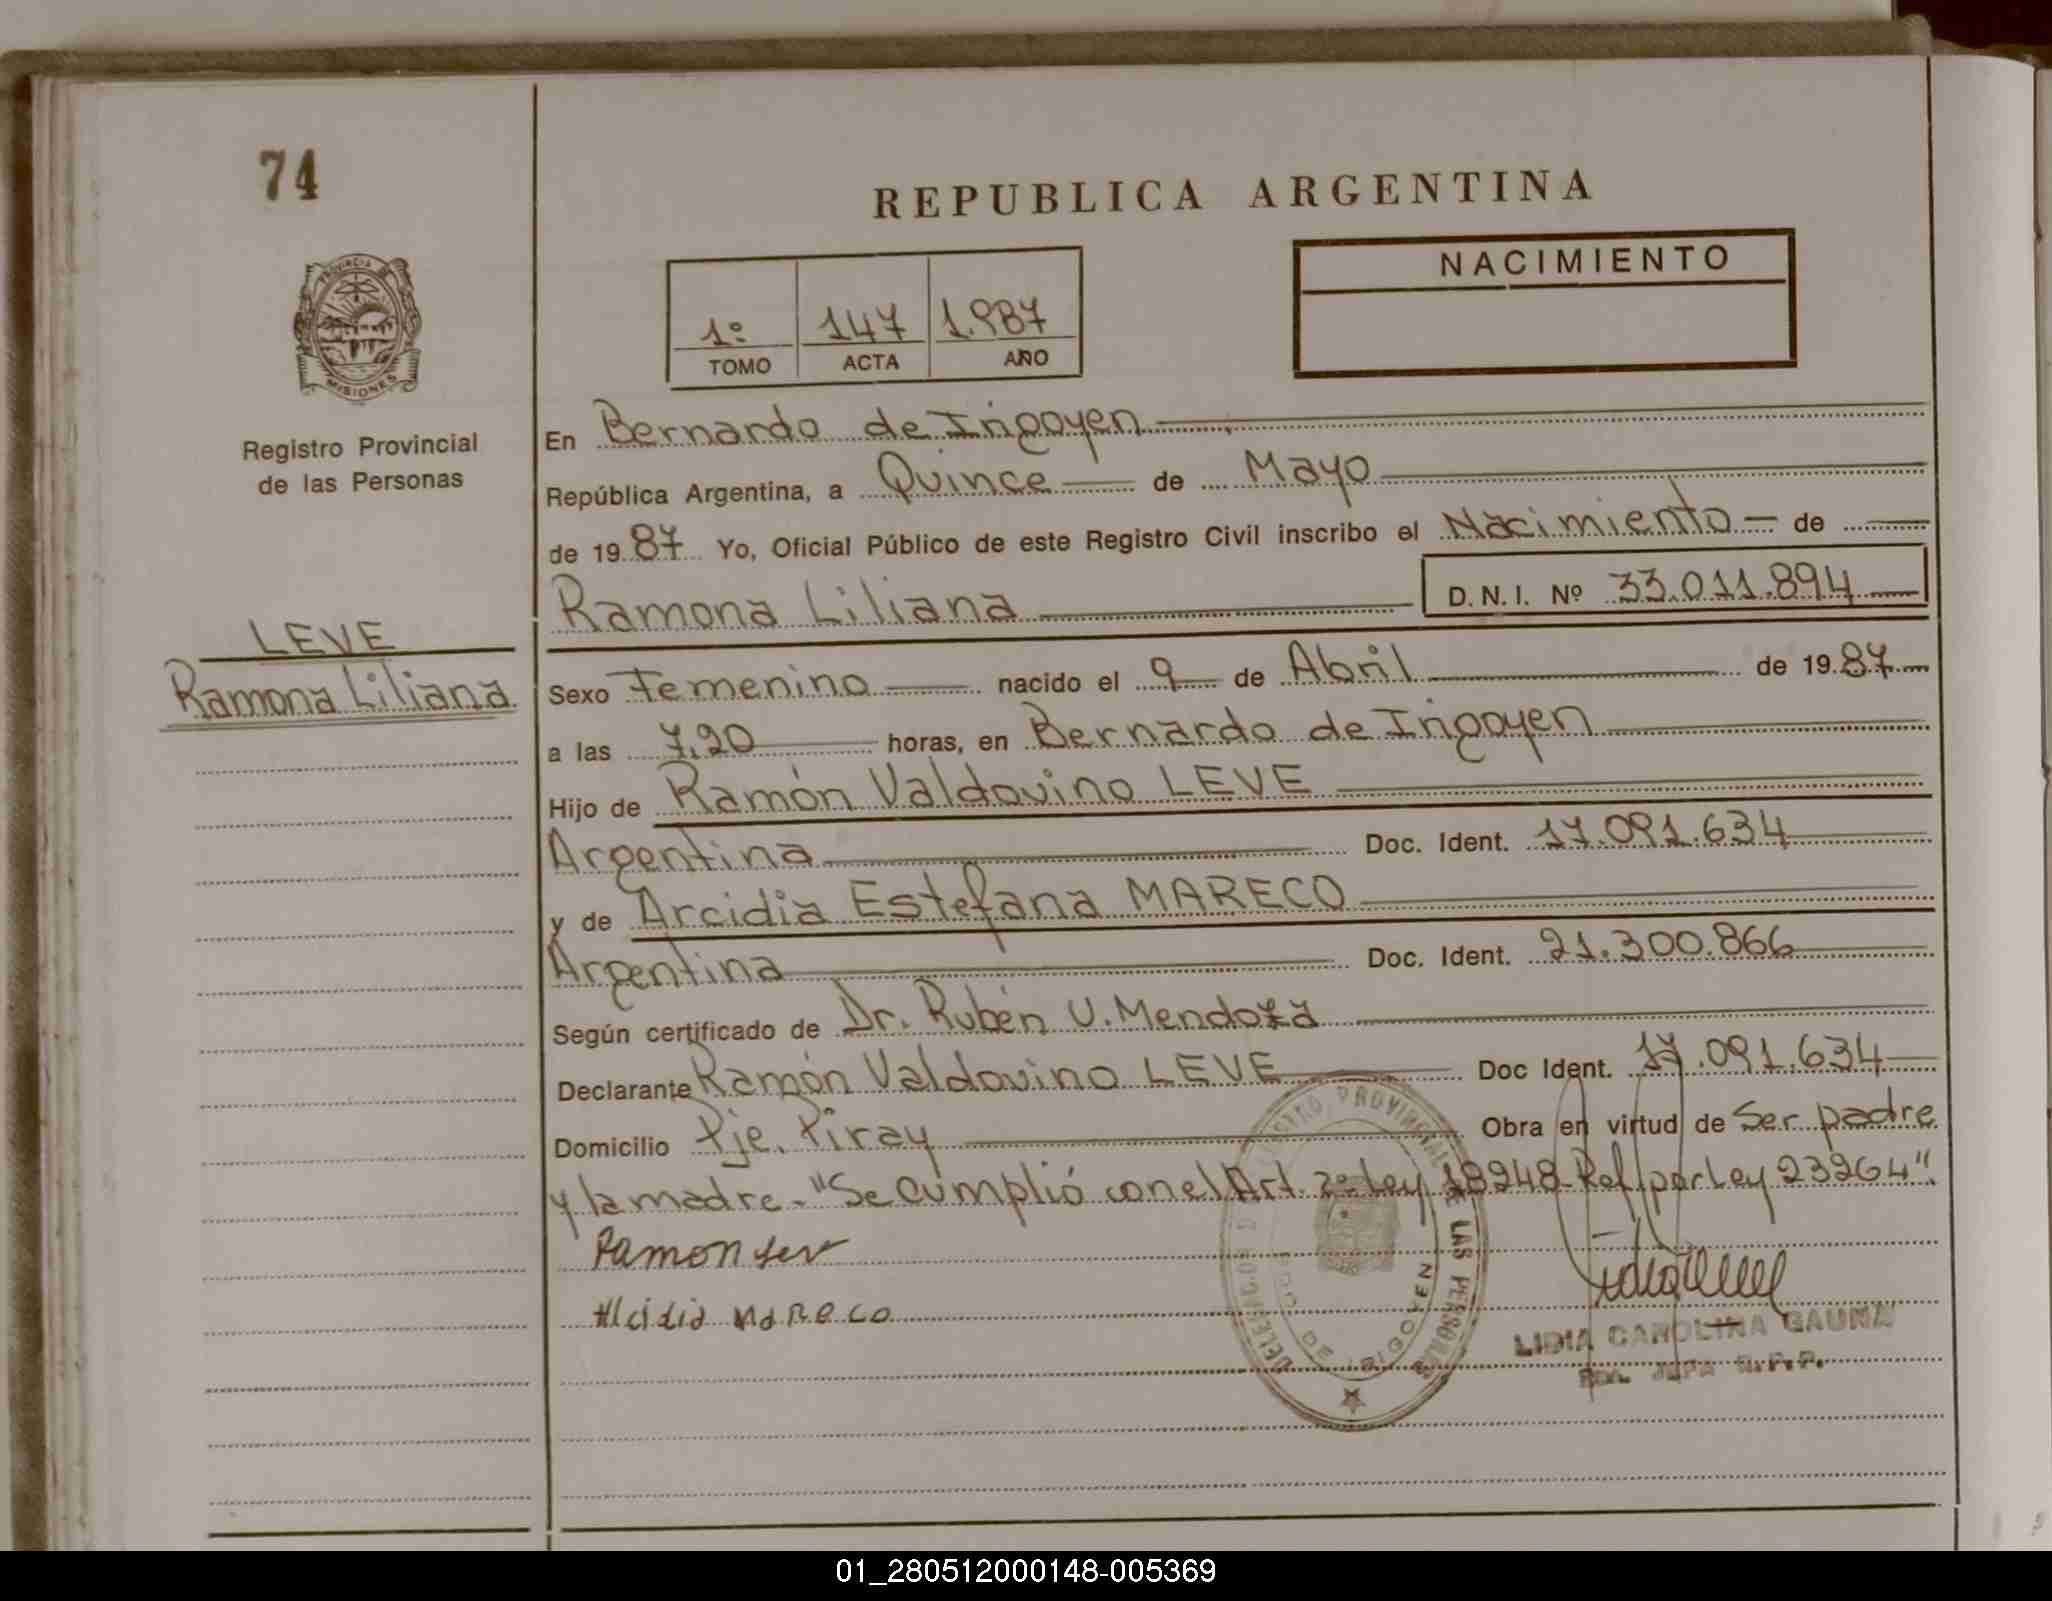 74
REPUBLICA ARGENTINA
PROVINCIA DE MISIONES
NACIMIENTO
1º 147 1.987
TOMO ACTA AÑO
Registro Provincial
de las Personas
LEVE
Ramona Liliana
En Bernardo de Irigoyen
República Argentina, a Quince de Mayo
de 1987 Yo, Oficial Público de este Registro Civil inscribo el Nacimiento de
Ramona Liliana D.N.I. Nº 33.011.894
Sexo Femenino nacido el 9 de Abril de 1987
a las 7,20 horas, en Bernardo de Irigoyen
Hijo de Ramón Valdovino LEVE
Argentina Doc. Ident. 17.091.634
y de Arcidia Estefana MARECO
Argentina Doc. Ident. 21.300.866
Según certificado de Dr. Rubén U. Mendoza
Declarante Ramón Valdovino LEVE Doc Ident. 17.091.634
Domicilio Pje. Piray Obra en virtud de Ser padre
y la madre. "Se cumplió con el Art. 2º Ley 18248 Ref. por Ley 23264".
Ramon
Alcidia Mareco
REGISTRO PROVINCIAL DE LAS PERSONAS
BDO DE IRIGOYEN
LIDIA CAROLINA GAUNA
JEFA R.P.P.
01_280512000148-005369